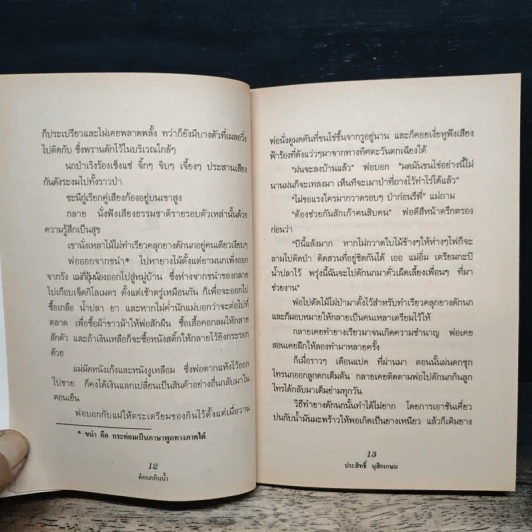 ก็ประเปรียวและไม่เคยพลาดพลั้ง ทว่าก็ยังมีบางตัวที่เผลอวิ่ง
ไปติดกับ ซึ่งพรานดักไว้ในบริเวณใกล้ๆ
นกป่าเริงร้องเซ็งแซ่ จิ๊กๆ จิบๆ เจี้ยงๆ ประสานเสียง
กันดังระงมไปทั้งราวป่า
ชะนีกู่เรียกคู่เสียงก้องอยู่บนเขาสูง
กลาย นั่งฟังเสียงธรรมชาติรายรอบตัวเหล่านั้นด้วย
ความรู้สึกเป็นสุข
เขานั่งเหลาไม้ไผ่ทำเรียวคลุกยางดักนกอยู่คนเดียวเงียบๆ
พ่อออกจากขนำ* ไปหายางไม้ตั้งแต่ยามนกเพิ่งออก
จากรัง แม่ก็อุ้มน้องออกไปสู่หมู่บ้าน ซึ่งห่างจากขนำของกลาย
ไปเกือบเจ็ดกิโลเมตร ตั้งแต่เช้าตรู่เหมือนกัน ก็เพื่อจะออกไป
ซื้อเกลือ น้ำปลา ยา และหากไม่ค่ำนักแม่บอกว่าจะต่อไปที่
ตลาด เพื่อซื้อผ้าขาวม้าให้พ่อสักผืน ซื้อเสื้อคอกลมให้กลาย
สักตัว และถ้าเงินเหลือก็จะซื้อหนังสติ๊กให้กลายไว้ยิงกระรอก
ด้วย
แม่มัดหนังเก้งและหนังงูเหลือม ซึ่งพ่อตากแห้งไว้ออก
ไปขาย ก็คงได้เงินแลกเปลี่ยนเป็นสินค้าอย่างอื่นกลับมาใน
ตอนเย็น
พ่อบอกกับแม่ให้ตระเตรียมของกินไว้ตั้งแต่เมื่อวาน
* ขนำ คือ กระท่อมเป็นภาษาพูดทางภาคใต้
12
ดักนกกินน้ำ
พ่อนั่งดูมดคันที่ขนไข่ขึ้นจากรูอยู่นาน และก็คอยเงี่ยหูฟังเสียง
ฟ้าร้องที่ดังแว่วๆมาจากทางทิศตะวันตกเฉียงใต้
"ฝนจะลงบ้านแล้ว" พ่อบอก "มดมันขนไข่อย่างนี้ไม่
นานฝนก็จะเทลงมา เห็นทีจะเผาป่าที่ถางไว้ทำไร่ได้แล้ว"
"ไม่ขอแรงใครมากวาดรอบๆ ป่าก่อนรึพี่" แม่ถาม
"ต้องช่วยกันสักเก้าคนสิบคน" พ่อตีสีหน้าตรึกตรอง
ก่อนว่า
"ปีนี้แล้งมาก หากไม่กวาดใบไม้ข้างๆให้ห่างๆไฟก็จะ
ลามไปติดป่า ติดสวนที่อยู่ชิดกันได้ เออ แม่อิ่ม เตรียมกะปิ
น้ำปลาไว้ พรุ่งนี้ฉันจะไปดักนกมาตัวเผ็ดเลี้ยงเพื่อนๆ ที่มา
ช่วยงาน"
พ่อไปตัดไม้ไผ่ป่ามาตั้งไว้สำหรับทำเรียวคลุกยางดักนก
และก็มอบหมายให้กลายเป็นคนเหลาเตรียมไว้ให้
กลายเคยทำยางเรียวมาจนเกิดความชำนาญ พ่อเคย
สอนเคยฝึกให้ลองทำมาหลายครั้ง
ก็เมื่อราวๆ เดือนแปด ที่ผ่านมา ตอนนั้นฝนตกชุก
ไทรนกออกลูกดกเต็มต้น กลายเคยติดตามพ่อไปดักนกกินลูก
ไทรได้กลับมาเต็มย่ามทุกวัน
วิธีทำยางดักนกนั้นทำได้ไม่ยาก โดยการเอาชันเคี่ยว
ปนกับน้ำมันมะพร้าวให้พอเกิดเป็นยางเหนียว แล้วก็เติมยาง
13
ประสิทธิ์ มุสิกเกษม